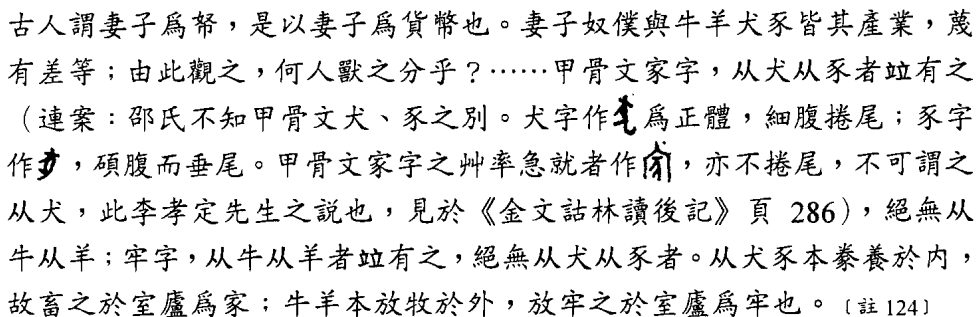 古人謂妻子爲帑，是以妻子爲貨幣也。妻子奴僕與牛羊犬豕皆其產業，蔑
有差等；由此觀之，何人獸之分乎？……甲骨文家字，从犬从豕者竝有之
（連案：邵氏不知甲骨文犬、豕之別。犬字作爲正體，細腹捲尾；豕字
作，碩腹而垂尾。甲骨文家字之艸率急就者作，亦不捲尾，不可謂之
从犬，此李孝定先生之說也，見於《金文詁林讀後記》頁 286），絕無从
牛从羊；牢字，从牛从羊者竝有之，絕無从犬从豕者。从犬豕本豢養於內，
故畜之於室廬爲家；牛羊本放牧於外，放牢之於室廬爲牢也。〔註 124〕